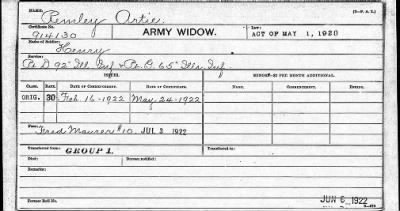 NAME: (3-P. A. L.)
Remley Artie
Certificate No. Law:
914130 ARMY WIDOW. ACT OF MAY 1, 1920
Name of Soldier:
Henry
Service:
Co. D 92" Ill. Inf. & Co. D. 65" Ills. Inf.
ISSUE. MINORS—$2 PER MONTH ADDITIONAL.
CLASS. RATE. DATE OF COMMENCEMENT. DATE OF CERTIFICATE. NAME. DATE OF COMMENCEMENT.
ORIG. 30 Feb. 16-1922 May-24-1922
Fred Maurer #10. JUL 3 1922
Transferred from: GROUP 1. Transferred to:
Died: Bureau notified:
Remarks:
Former Roll No. JUN 6 1922